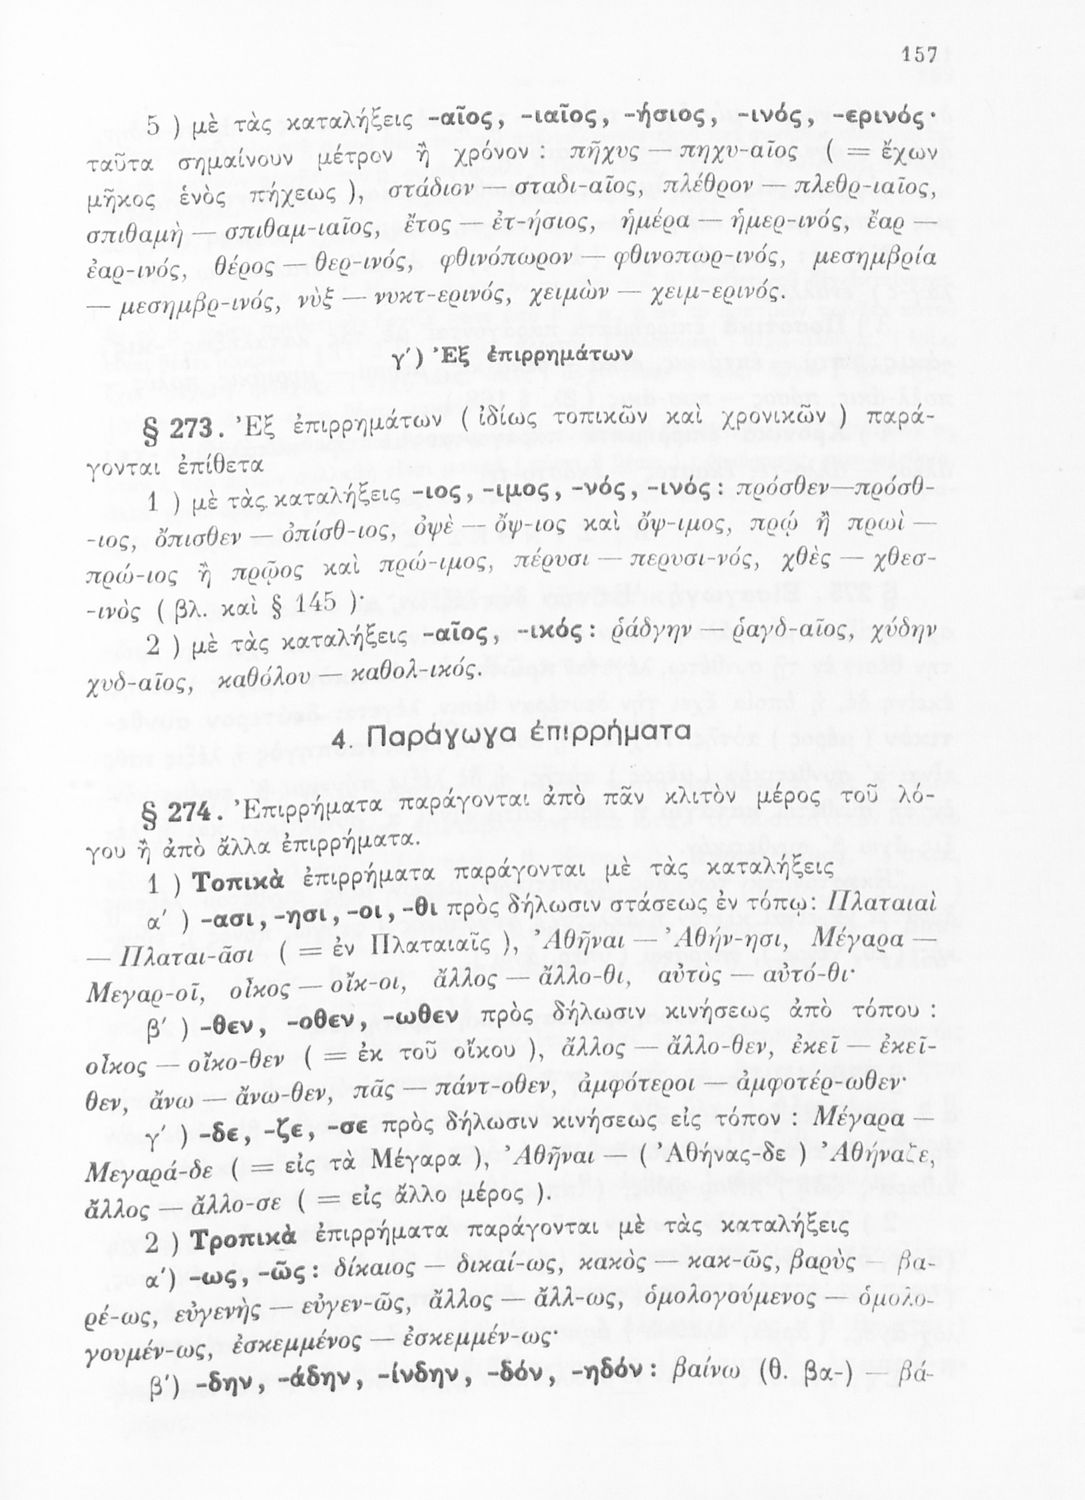 157
5 ) μὲ τὰς καταλήξεις -αῖος, -ιαῖος, -ήσιος, -ινός, -ερινός·
ταῦτα σημαίνουν μέτρον ἢ χρόνον : πῆχυς — πηχυ-αῖος ( = ἔχων
μῆκος ἑνὸς πήχεως ), στάδιον — σταδι-αῖος, πλέθρον — πλεθρ-ιαῖος,
σπιθαμὴ — σπιθαμ-ιαῖος, ἔτος — ἐτ-ήσιος, ἡμέρα — ἡμερ-ινός, ἔαρ —
ἐαρ-ινός, θέρος — θερ-ινός, φθινόπωρον — φθινοπωρ-ινός, μεσημβρία
— μεσημβρ-ινός, νὺξ — νυκτ-ερινός, χειμὼν — χειμ-ερινός.
γ') Ἐξ ἐπιρρημάτων
§ 273. Ἐξ ἐπιρρημάτων ( ἰδίως τοπικῶν καὶ χρονικῶν ) παρά-
γονται ἐπίθετα
1 ) μὲ τὰς καταλήξεις -ιος, -ιμος, -νός, -ινός : πρόσθεν—πρόσθ-
-ιος, ὄπισθεν — ὀπίσθ-ιος, ὀψὲ — ὄψ-ιος καὶ ὄψ-ιμος, πρῲ ἢ πρωὶ —
πρώ-ιος ἢ πρῷος καὶ πρώ-ιμος, πέρυσι — περυσι-νός, χθὲς — χθεσ-
-ινὸς ( βλ. καὶ § 145 )·
2 ) μὲ τὰς καταλήξεις -αῖος, -ικός : ῥάδγην — ῥαγδ-αῖος, χύδην
χυδ-αῖος, καθόλου — καθολ-ικός.
4. Παράγωγα ἐπιρρήματα
§ 274. Ἐπιρρήματα παράγονται ἀπὸ πᾶν κλιτὸν μέρος τοῦ λό-
γου ἢ ἀπὸ ἄλλα ἐπιρρήματα.
1 ) Τοπικὰ ἐπιρρήματα παράγονται μὲ τὰς καταλήξεις
α' ) -ασι, -ησι, -οι, -θι πρὸς δήλωσιν στάσεως ἐν τόπῳ: Πλαταιαὶ
— Πλαται-ᾶσι ( = ἐν Πλαταιαῖς ), Ἀθῆναι — Ἀθήν-ησι, Μέγαρα —
Μεγαρ-οῖ, οἶκος — οἴκ-οι, ἄλλος — ἄλλο-θι, αὐτὸς — αὐτό-θι·
β' ) -θεν, -οθεν, -ωθεν πρὸς δήλωσιν κινήσεως ἀπὸ τόπου :
οἶκος — οἴκο-θεν ( = ἐκ τοῦ οἴκου ), ἄλλος — ἄλλο-θεν, ἐκεῖ — ἐκεῖ-
θεν, ἄνω — ἄνω-θεν, πᾶς — πάντ-οθεν, ἀμφότεροι — ἀμφοτέρ-ωθεν·
γ' ) -δε, -ζε, -σε πρὸς δήλωσιν κινήσεως εἰς τόπον : Μέγαρα —
Μεγαρά-δε ( = εἰς τὰ Μέγαρα ), Ἀθῆναι — ( Ἀθήνας-δε ) Ἀθήναζε,
ἄλλος — ἄλλο-σε ( = εἰς ἄλλο μέρος ).
2 ) Τροπικὰ ἐπιρρήματα παράγονται μὲ τὰς καταλήξεις
α') -ως, -ῶς : δίκαιος — δικαί-ως, κακὸς — κακ-ῶς, βαρὺς — βα-
ρέ-ως, εὐγενὴς — εὐγεν-ῶς, ἄλλος — ἄλλ-ως, ὁμολογούμενος — ὁμολο-
γουμέν-ως, ἐσκεμμένος — ἐσκεμμέν-ως·
β') -δην, -άδην, -ίνδην, -δόν, -ηδόν : βαίνω (θ. βα-) — βά-